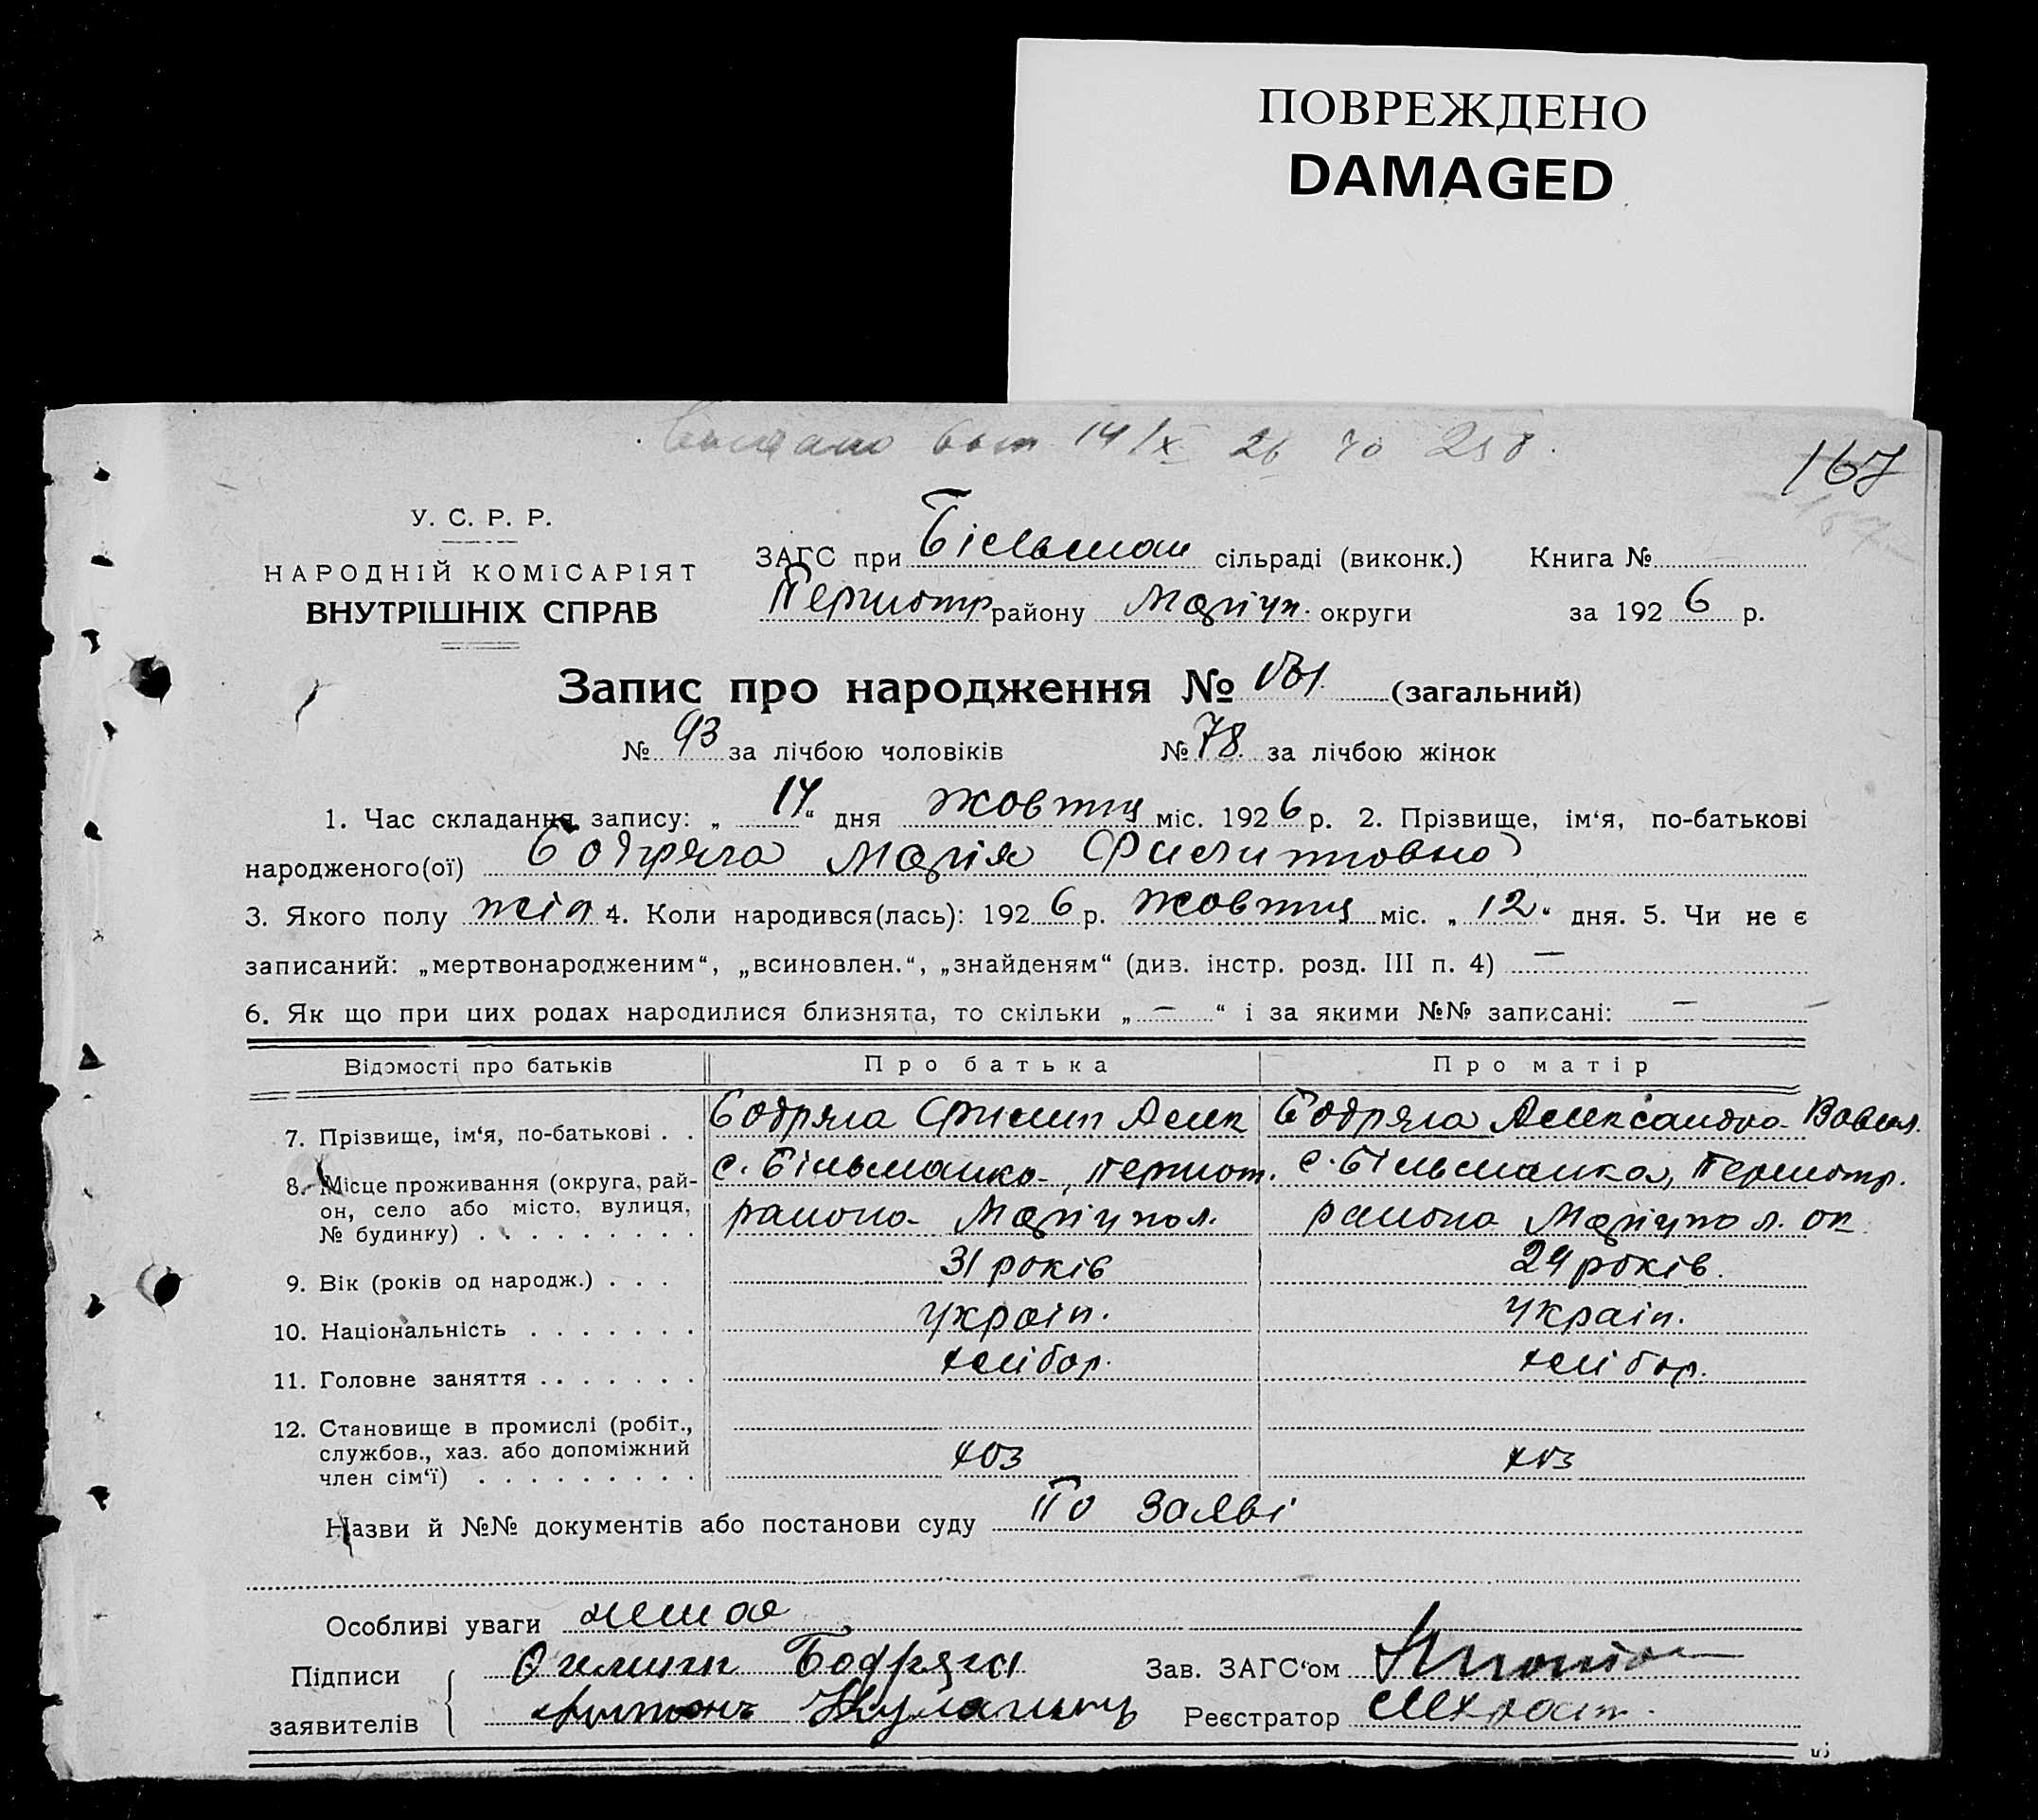 ПОВРЕЖДЕНО
DAMAGED
14/X 26 258.
167
У. С. Р. Р.
НАРОДНІЙ КОМІСАРІЯТ
ВНУТРІШНІХ СПРАВ
ЗАГС при Більман сільраді (виконк.) Книга №
Першотр району Маріуп. округи за 1926 р.
Запис про народження № (загальний)
№ 93 за лічбою чоловіків № 78 за лічбою жінок
1. Час складання запису: „ 14 “ дня жовтня міс. 1926 р. 2. Прізвище, ім‘я, по-батькові
народженого(ої) Бодряга Марія Филиповна
3. Якого полу жін 4. Коли народився(лась): 1926 р. жовтня міс. „ 12 “ дня. 5. Чи не є
записаний: „мертвонародженим“, „всиновлен.“, „знайденям“ (див. інстр. розд. III п. 4) —
6. Як що при цих родах народилися близнята, то скільки „ — “ і за якими №№ записані: —
Відомості про батьків Про батька Про матір
7. Прізвище, ім‘я, по-батькові . . Бодряга Филип Алек Бодряга Александра Вавил.
8. Місце проживання (округа, рай- с. Більманка, Першот. с. Більманка, Першотр.
он, село або місто, вулиця, района Маріупол. района Маріупол. ок
№ будинку) . . . . . . . . .
9. Вік (років од народж.) . . . 31 років 24 років.
10. Національність . . . . . . . Україн. Україн.
11. Головне заняття . . . . . . . хлібор. хлібор.
12. Становище в промислі (робіт.,
службов., хаз. або допоміжний хоз хоз
член сім‘ї) . . . . . . . . .
Назви й №№ документів або постанови суду По заяві
Особливі уваги немає
Підписи Бодряга Зав. ЗАГС‘ом
заявителів Антонъ Реєстратор